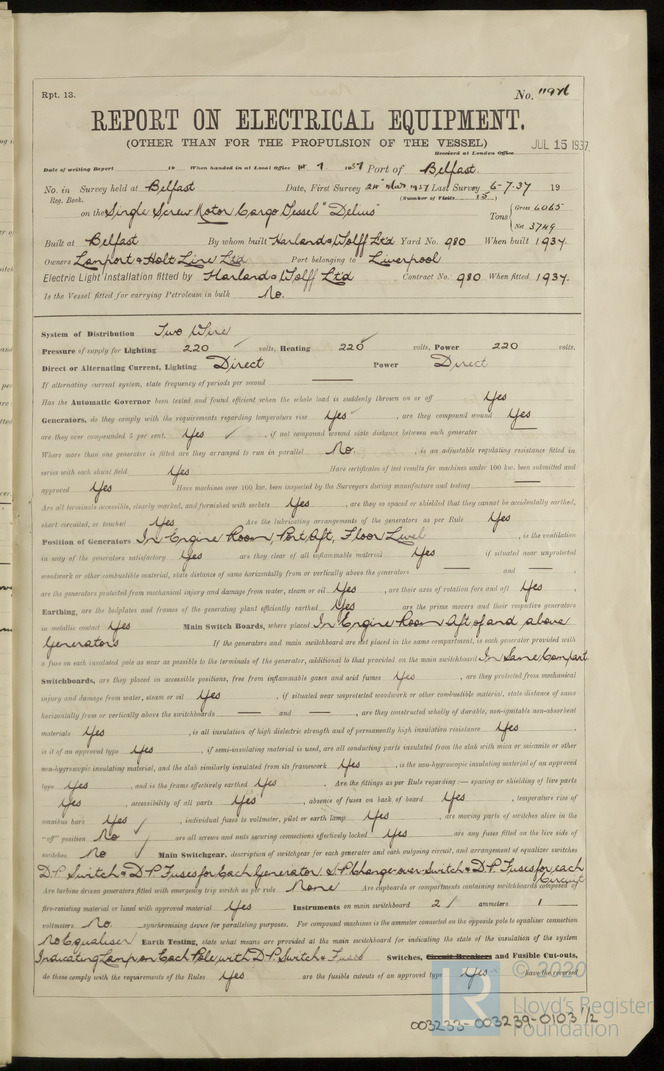 Rpt. 13.
No.
REPORT ON ELECTRICAL EQUIPMENT.
(OTHER THAN FOR THE PROPULSION OF THE VESSEL)
JUL 15 1937
Received at London Office
Date of writing Report 19 When handed in at Local Office 1937 Port of Belfast.
No. in Survey held at Belfast Date, First Survey Last Survey 6-7-37 19
Reg. Book. (Number of Visits 15)
on the Single Screw Motor Cargo Vessel "Delius" Tons { Gross 6065
Net 3749
Built at Belfast By whom built Harland & Wolff Ltd Yard No. 980 When built 1937.
Owners Lamport & Holt Line Ltd Port belonging to Liverpool
Electric Light Installation fitted by Harland & Wolff Ltd Contract No. 980 When fitted 1937.
Is the Vessel fitted for carrying Petroleum in bulk No.
System of Distribution Two Wire
Pressure of supply for Lighting 220 volts, Heating 220 volts, Power 220 volts.
Direct or Alternating Current, Lighting Direct Power Direct
If alternating current system, state frequency of periods per second
Has the Automatic Governor been tested and found efficient when the whole load is suddenly thrown on or off Yes
Generators, do they comply with the requirements regarding temperature rise Yes, are they compound wound Yes
are they over compounded 5 per cent. Yes, if not compound wound state distance between each generator
Where more than one generator is fitted are they arranged to run in parallel No., is an adjustable regulating resistance fitted in
series with each shunt field Yes Have certificates of test results for machines under 100 kw. been submitted and
approved Yes Have machines over 100 kw. been inspected by the Surveyors during manufacture and testing
Are all terminals accessible, clearly marked, and furnished with sockets Yes, are they so spaced or shielded that they cannot be accidentally earthed,
short circuited, or touched Yes Are the lubricating arrangements of the generators as per Rule Yes
Position of Generators In Engine Room, Port Aft, Floor Level, is the ventilation
in way of the generators satisfactory Yes are they clear of all inflammable material Yes if situated near unprotected
woodwork or other combustible material, state distance of same horizontally from or vertically above the generators and
are the generators protected from mechanical injury and damage from water, steam or oil Yes, are their axes of rotation fore and aft Yes
Earthing, are the bedplates and frames of the generating plant efficiently earthed Yes are the prime movers and their respective generators
in metallic contact Yes Main Switch Boards, where placed In Engine Room Aft of and above
Generators If the generators and main switchboard are not placed in the same compartment, is each generator provided with
a fuse on each insulated pole as near as possible to the terminals of the generator, additional to that provided on the main switchboard In Same Compart.
Switchboards, are they placed in accessible positions, free from inflammable gases and acid fumes Yes, are they protected from mechanical
injury and damage from water, steam or oil Yes, if situated near unprotected woodwork or other combustible material, state distance of same
horizontally from or vertically above the switchboards and, are they constructed wholly of durable, non-ignitable non-absorbent
materials Yes, is all insulation of high dielectric strength and of permanently high insulation resistance Yes
is it of an approved type Yes, if semi-insulating material is used, are all conducting parts insulated from the slab with mica or micanite or other
non-hygroscopic insulating material, and the slab similarly insulated from its framework Yes, is the non-hygroscopic insulating material of an approved
type Yes, and is the frame effectively earthed Yes. Are the fittings as per Rule regarding:— spacing or shielding of live parts
Yes, accessibility of all parts Yes, absence of fuses on back of board Yes, temperature rise of
omnibus bars Yes, individual fuses to voltmeter, pilot or earth lamp Yes, are moving parts of switches alive in the
"off" position No are all screws and nuts securing connections effectively locked Yes are any fuses fitted on the live side of
switches No Main Switchgear, description of switchgear for each generator and each outgoing circuit, and arrangement of equalizer switches
D.P. Switch & D.P. Fuses for Each Generator. D.P. Changeover Switch & D.P. Fuses for each
Circuit
Are turbine driven generators fitted with emergency trip switch as per rule None Are cupboards or compartments containing switchboards composed of
fire-resisting material or lined with approved material Yes Instruments on main switchboard 2 ammeters 1
voltmeters No. synchronising device for paralleling purposes. For compound machines is the ammeter connected on the opposite pole to equaliser connection
No Equaliser Earth Testing, state what means are provided at the main switchboard for indicating the state of the insulation of the system
Indicating Lamp on Each Pole with D.P. Switch & Fuses Switches, Circuit Breakers and Fusible Cut-outs,
do these comply with the requirements of the Rules Yes are the fusible cutouts of an approved type Yes have the reversed
© 2020
LR
Lloyd's Register
Foundation
003233-003239-0103 1/2